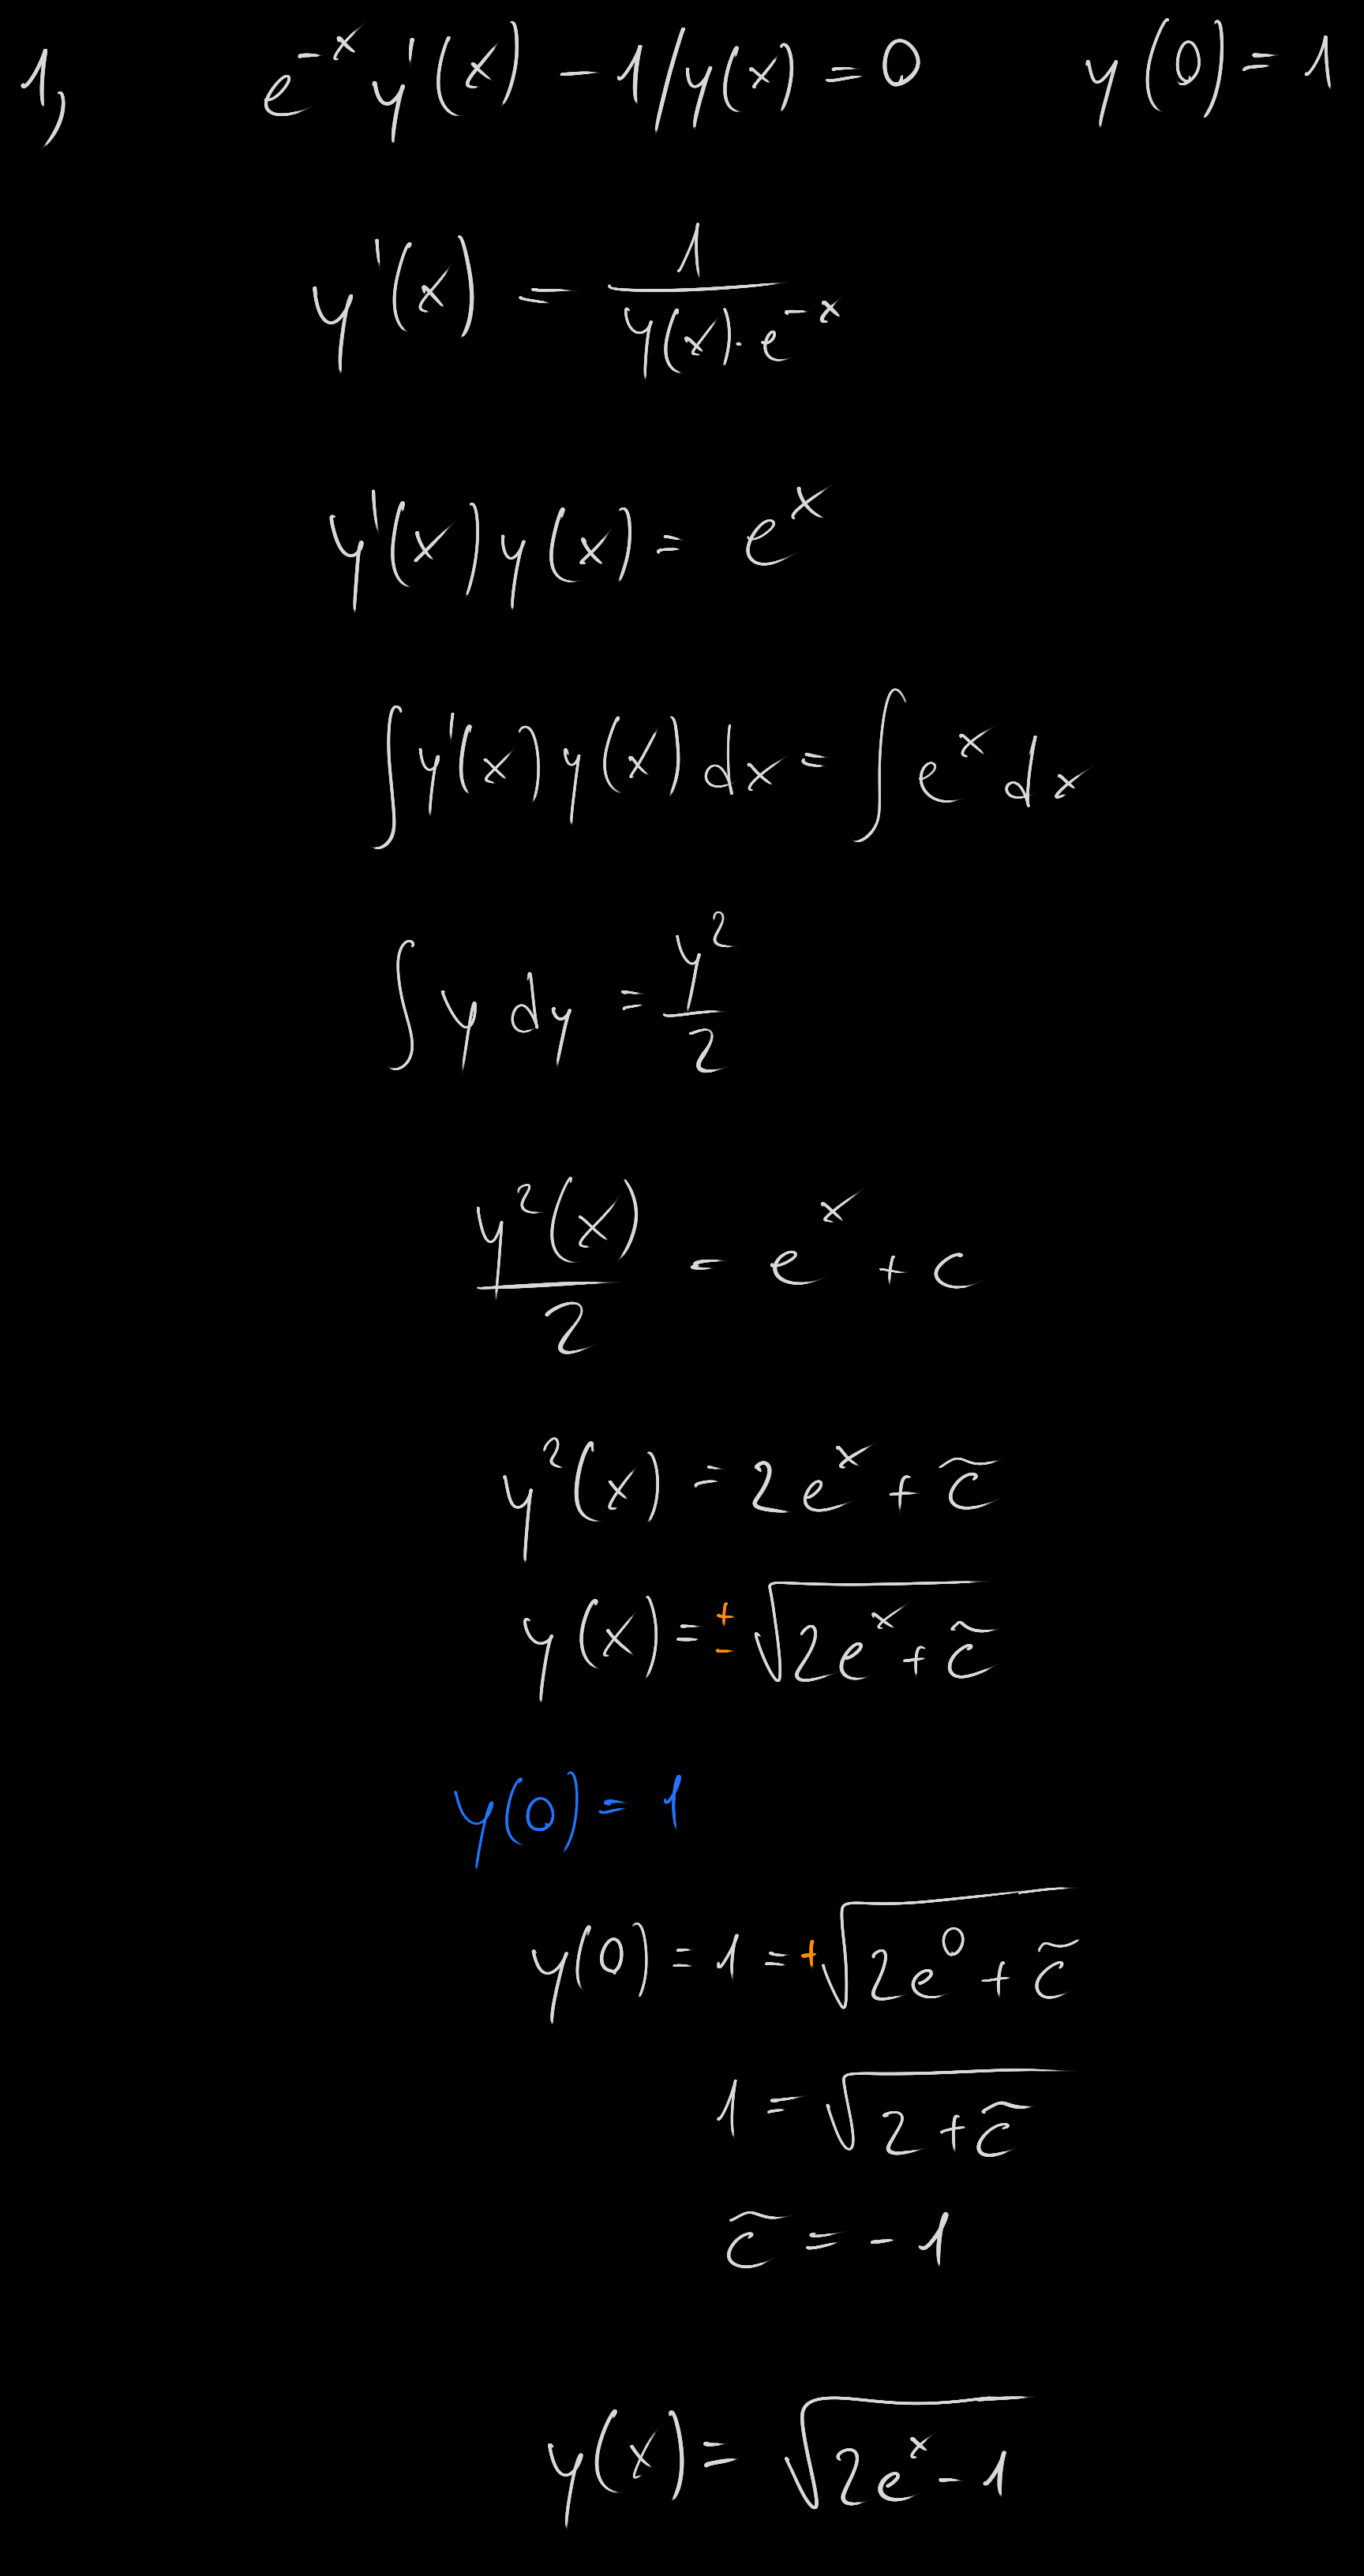 1, e^{-x} y'(x) - 1/y(x) = 0 y(0) = 1
y'(x) = \frac{1}{y(x) \cdot e^{-x}}
y'(x) y(x) = e^x
\int y'(x) y(x) dx = \int e^x dx
\int y dy = \frac{y^2}{2}
\frac{y^2(x)}{2} = e^x + c
y^2(x) = 2e^x + \tilde{c}
y(x) = \pm \sqrt{2e^x + \tilde{c}}
y(0) = 1
y(0) = 1 = +\sqrt{2e^0 + \tilde{c}}
1 = \sqrt{2 + \tilde{c}}
\tilde{c} = -1
y(x) = \sqrt{2e^x - 1}